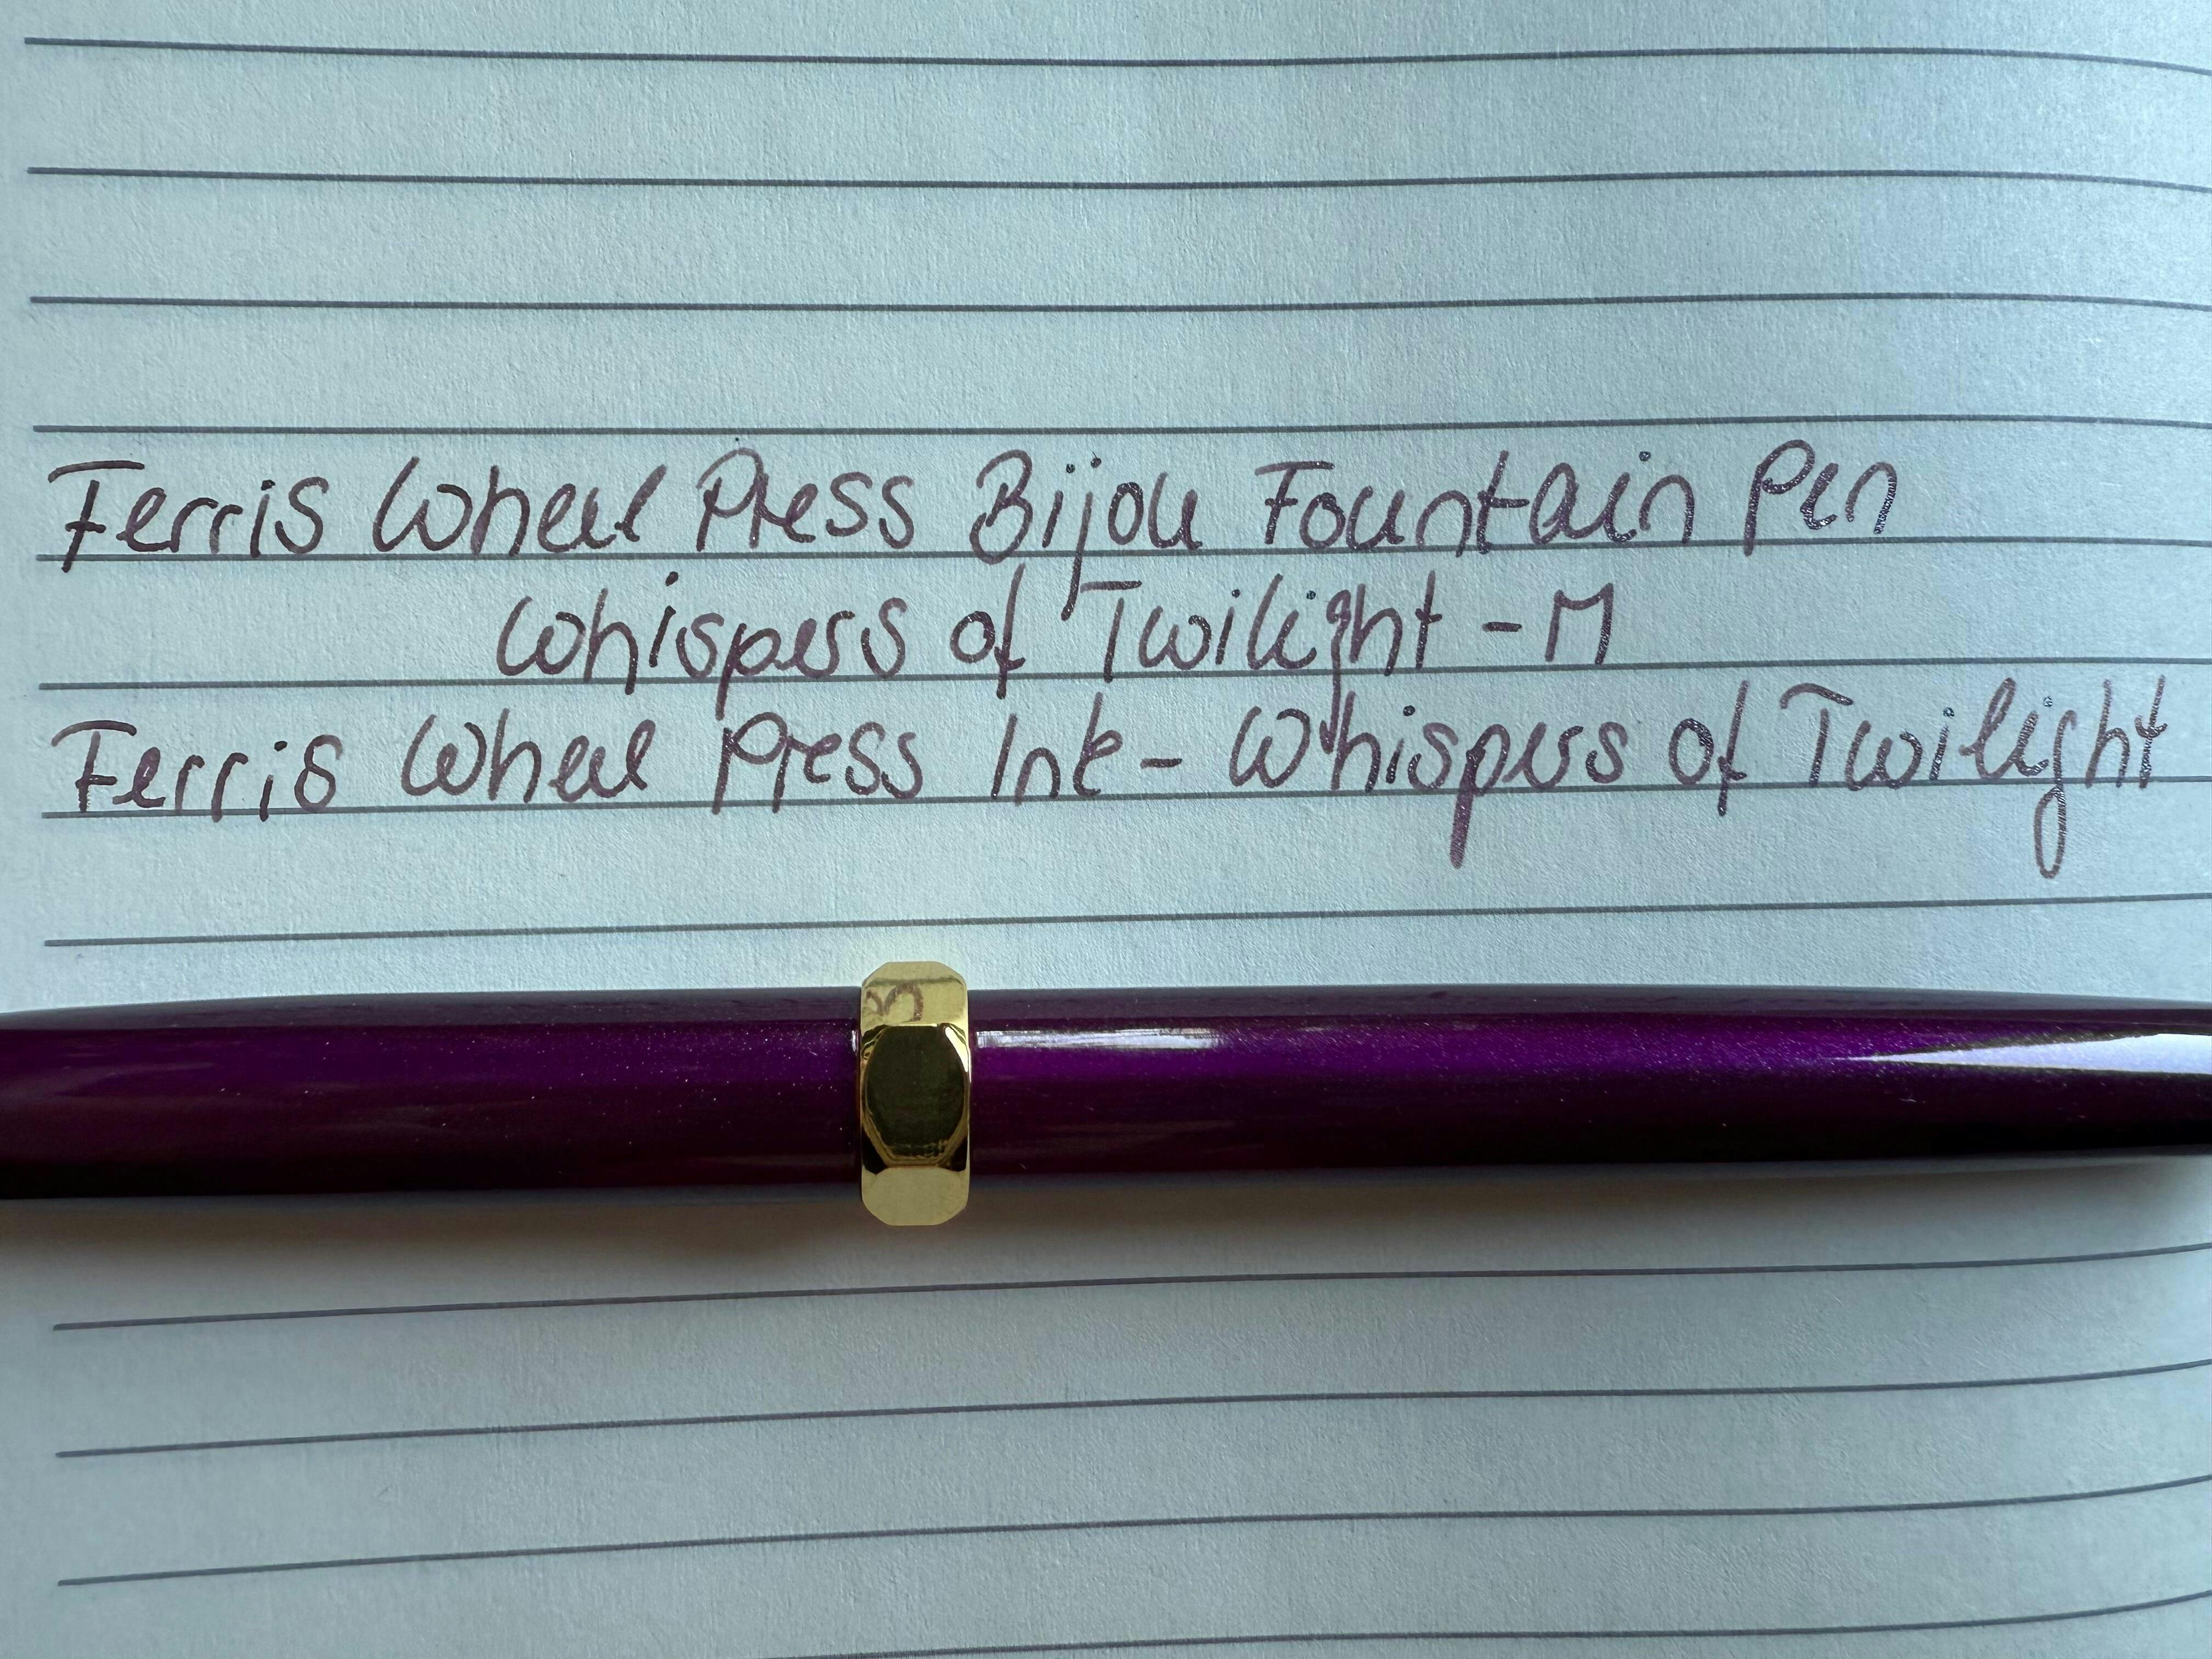 Ferris Wheel Press Bijou Fountain Pen
Whispers of Twilight - M
Ferris Wheel Press Ink - Whispers of Twilight